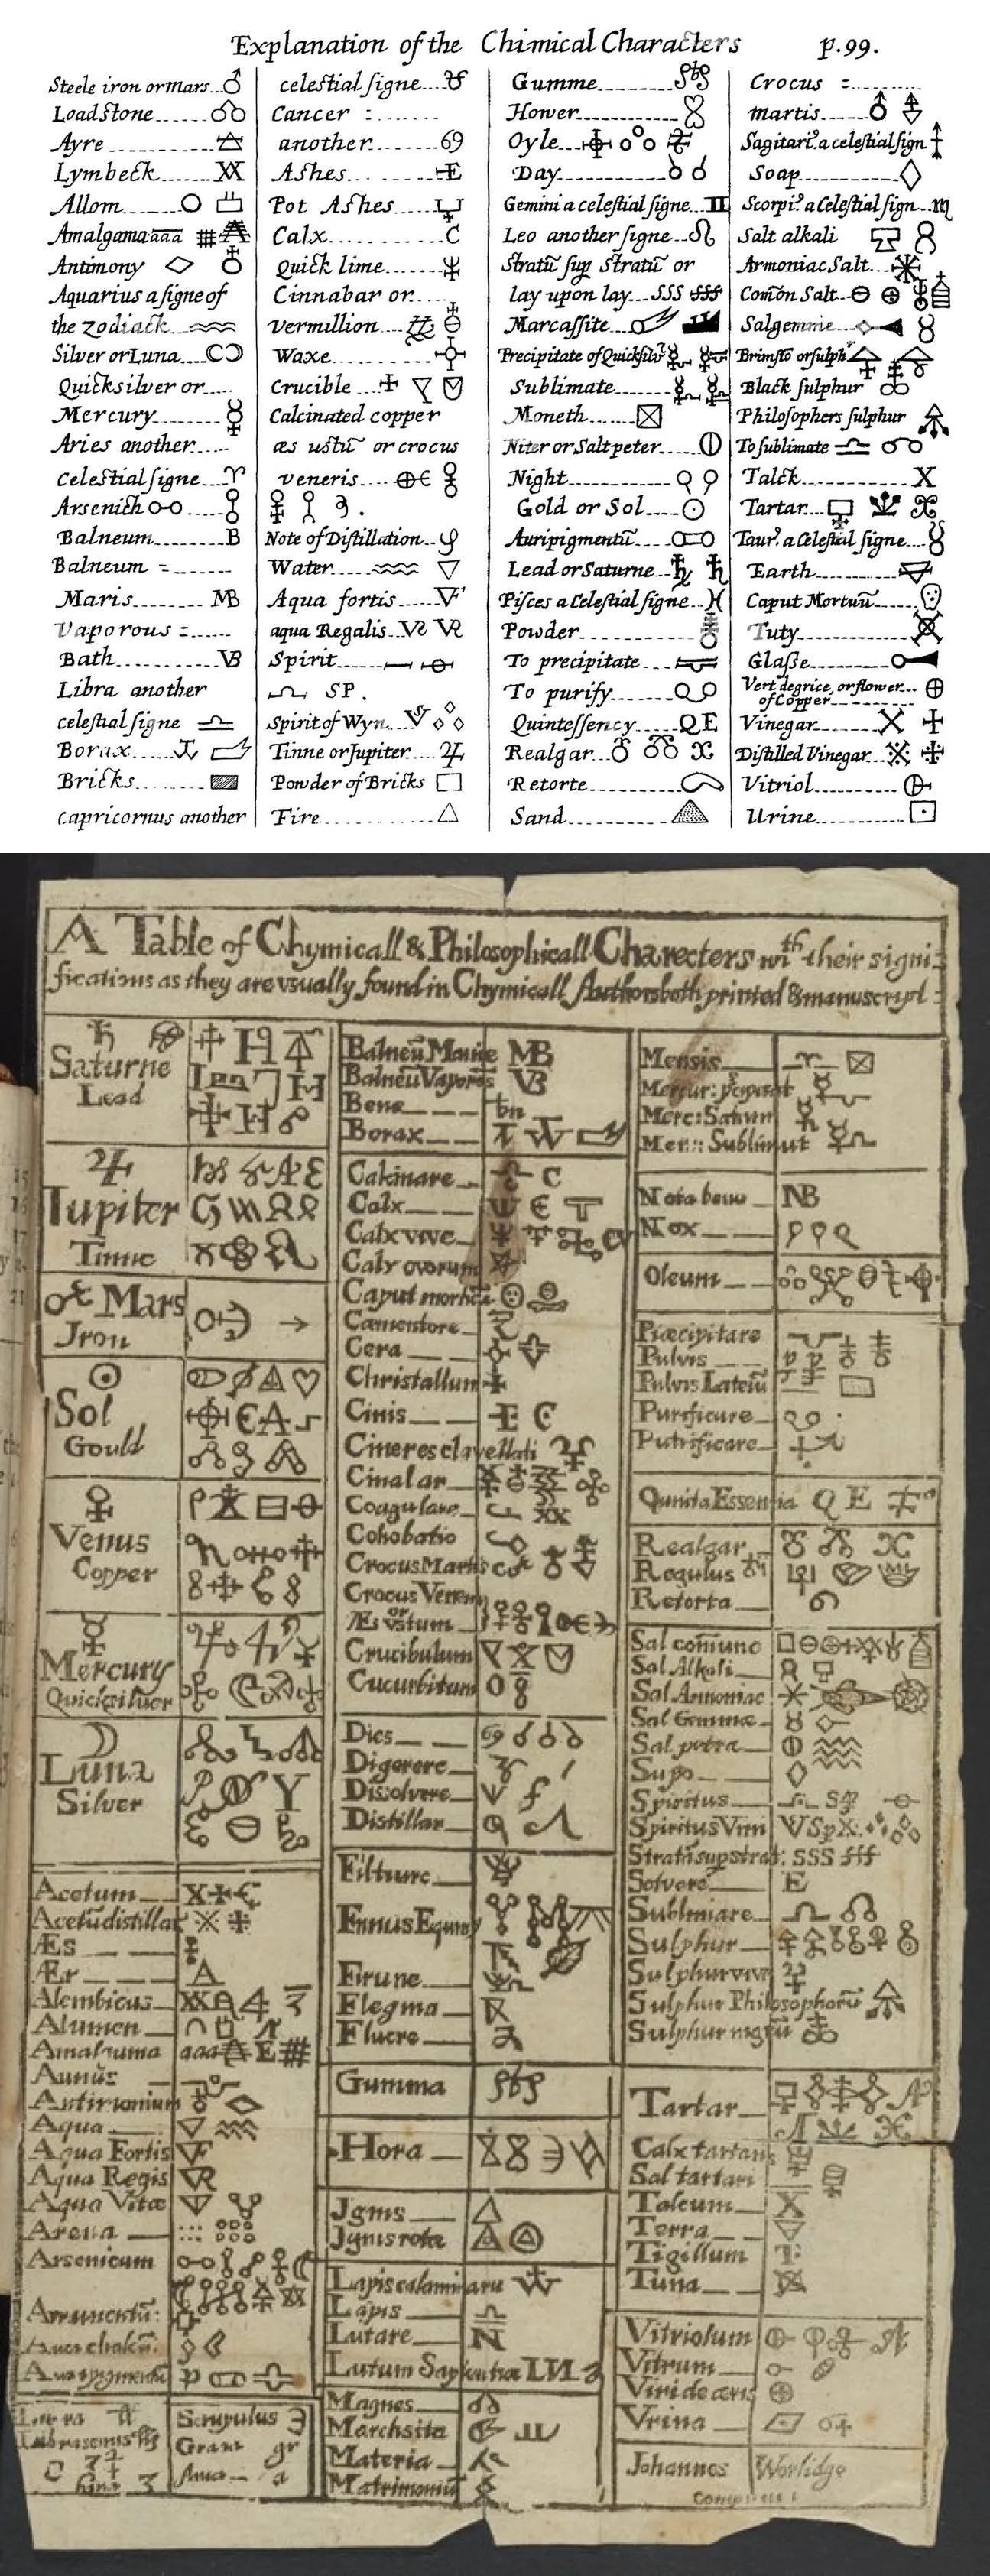 Explanation of the Chimical Characters p.99.
Steele iron or mars
Loadstone
Ayre
Lymbeck
Allom
Amalgama aaa
Antimony
Aquarius a signe of
the Zodiack
Silver or Luna
Quicksilver or
Mercury
Aries another
Celestial signe
Arsenick
Balneum B
Balneum =
Maris MB
Vaporous =
Bath VB
Libra another
celestial signe
Borax
Bricks
capricornus another
celestial signe
Cancer :
another 69
Ashes E
Pot Ashes
Calx C
Quick lime
Cinnabar or
vermillion
Waxe
Crucible
Calcinated copper
æs ustū or crocus
veneris
Note of Distillation
Water
Aqua fortis
aqua Regalis
Spirit
SP.
Spirit of Wyn
Tinne or Jupiter
Powder of Bricks
Fire
Gumme
Hower
Oyle
Day
Gemini a celestial signe
Leo another signe
Stratū sup Stratū or
lay upon lay SSS
Marcassite
Precipitate of Quicksilv
Sublimate
Moneth
Niter or Saltpeter
Night
Gold or Sol
Auripigmentū
Lead or Saturne
Pisces a Celestial signe
Powder
To precipitate
To purify
Quintessency QE
Realgar
Retorte
Sand
Crocus =
martis
Sagitari? a celestial sign
Soap
Scorpi? a Celestial sign
Salt alkali
Armoniac Salt
Comōn Salt
Salgemme
Brimstō or sulph
Black sulphur
Philosophers sulphur
To sublimate
Talck X
Tartar
Taur? a Celestial signe
Earth
Caput Mortuū
Tuty
Glaße
Vert degrice, or flower
of Copper
Vinegar
Distilled Vinegar
Vitriol
Urine
A Table of Chymicall & Philosophicall Charecters wth their signi=
fications as they are vsually found in Chymicall Authors both printed & manuscript :
Saturne
Lead
Iupiter
Tinne
Mars
Jron
Sol
Gould
Venus
Copper
Mercury
Quicksiluer
Luna
Silver
Acetum
Acetū distillat
Æs
Ær
Alembicus
Alumen
Amalgama aaa
Antimonium
Aqua
Aqua Fortis
Aqua Regis
Aqua Vitæ
Arena
Arsenicum
Scrupulus
Grana gr
Balneū Mariæ MB
Balneū Vaporis VB
Bene bn
Borax
Calcinare C
Calx
Calx vive
Calx ovorum
Caput mortuū
Cæmentare
Cera
Christallum
Cinis
Cineres clavellati
Cinabar
Coagulare
Cohobatio
Crocus Martis
Crocus Veneris
or
Æs vstum
Crucibulum
Cucurbitum
Dies
Digerere
Dissolvere
Distillar
Filtrare
Fimus Equiny
Flegma
Gumma
Hora
Jgnis
Jgnis rotæ
Lapis calaminaris
Lapis
Lutare
Lutum Sapientiæ
Magnes
Marchsita
Materia
Matrimoniū
Mensis
Mercur: precipitat
Merc: Saturn
Mer:: Sublimat
Nota bene NB
Nox
Oleum
Præcipitare
Pulvis
Pulvis Laterū
Purificare
Putrificare
Quinta Essentia Q E
Realgar
Regulus
Retorta
Sal comune
Sal Alkali
Sal Armoniac
Sal Gemmæ
Sal petra
Spiritus
Spiritus Vini
Stratū sup strat: SSS
Solvere E
Sublimare
Sulphur
Sulphur vive
Sulphur Philosophorū
Sulphur nigrū
Tartar
Calx tartari
Sal tartari
Talcum
Terra
Tigillum
Vitriolum
Vitrum
Viride æris
Vrina
Johannes Worlidge